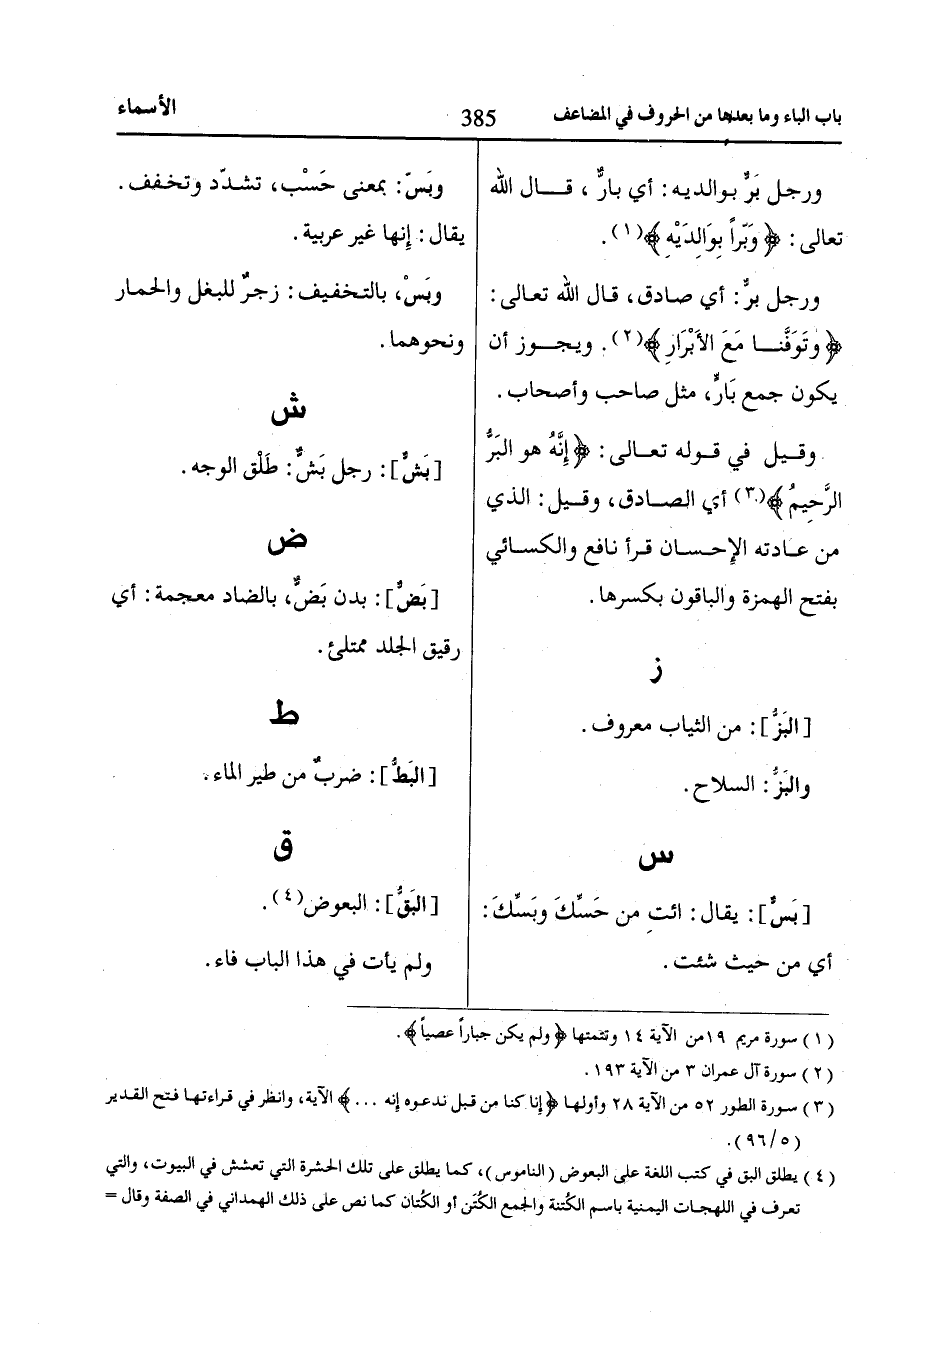 باب الباء وما بعدها من الحروف في المضاعف
385
الأسماء
ورجل بَرٌّ بوالديه: أي بارٌّ، قال الله
تعالى: ﴿وَبَراً بِوَالِدَيْهِ﴾(١).
ورجل برٌّ: أي صادق، قال الله تعالى:
﴿وتَوَفَّنا مَعَ الأَبْرَارِ﴾(٢). ويجوز أن
يكون جمع بَارٌّ، مثل صاحب وأصحاب.
وقيل في قوله تعالى: ﴿إِنَّهُ هو البَرُّ
الرَّحِيمُ﴾(٣) أي الصادق، وقيل: الذي
من عادته الإحسان قرأ نافع والكسائي
بفتح الهمزة والباقون بكسرها.
ز
[البَزُّ]: من الثياب معروف.
والبَزُّ: السلاح.
س
[بَسٌّ]: يقال: ائت من حَسِّكَ وبَسِّكَ:
أي من حيث شئت.
وبَسّ: بمعنى حَسْب، تشدّد وتخفف.
يقال: إنها غير عربية.
وبَسْ، بالتخفيف: زجرٌ للبغل والحمار
ونحوهما.
ش
[بَشٌّ]: رجل بَشٌّ: طَلْق الوجه.
ض
[بَضٌّ]: بدن بَضٌّ، بالضاد معجمة: أي
رقيق الجلد ممتلئ.
ط
[البَطُّ]: ضربٌ من طير الماء.
ق
[البَقُّ]: البعوض(٤).
ولم يأت في هذا الباب فاء.
(١) سورة مريم ١٩من الآية ١٤ وتتمتها ﴿ولم يكن جباراً عصياً﴾.
(٢) سورة آل عمران ٣ من الآية ١٩٣.
(٣) سورة الطور ٥٢ من الآية ٢٨ وأولها ﴿إنا كنا من قبل ندعوه إنه ...﴾ الآية، وانظر في قراءتها فتح القدير
(٩٦/٥).
(٤) يطلق البق في كتب اللغة على البعوض (الناموس)، كما يطلق على تلك الحشرة التي تعشش في البيوت، والتي
تعرف في اللهجات اليمنية باسم الكُتنة والجمع الكُتَن أو الكُتان كما نص على ذلك الهمداني في الصفة وقال =